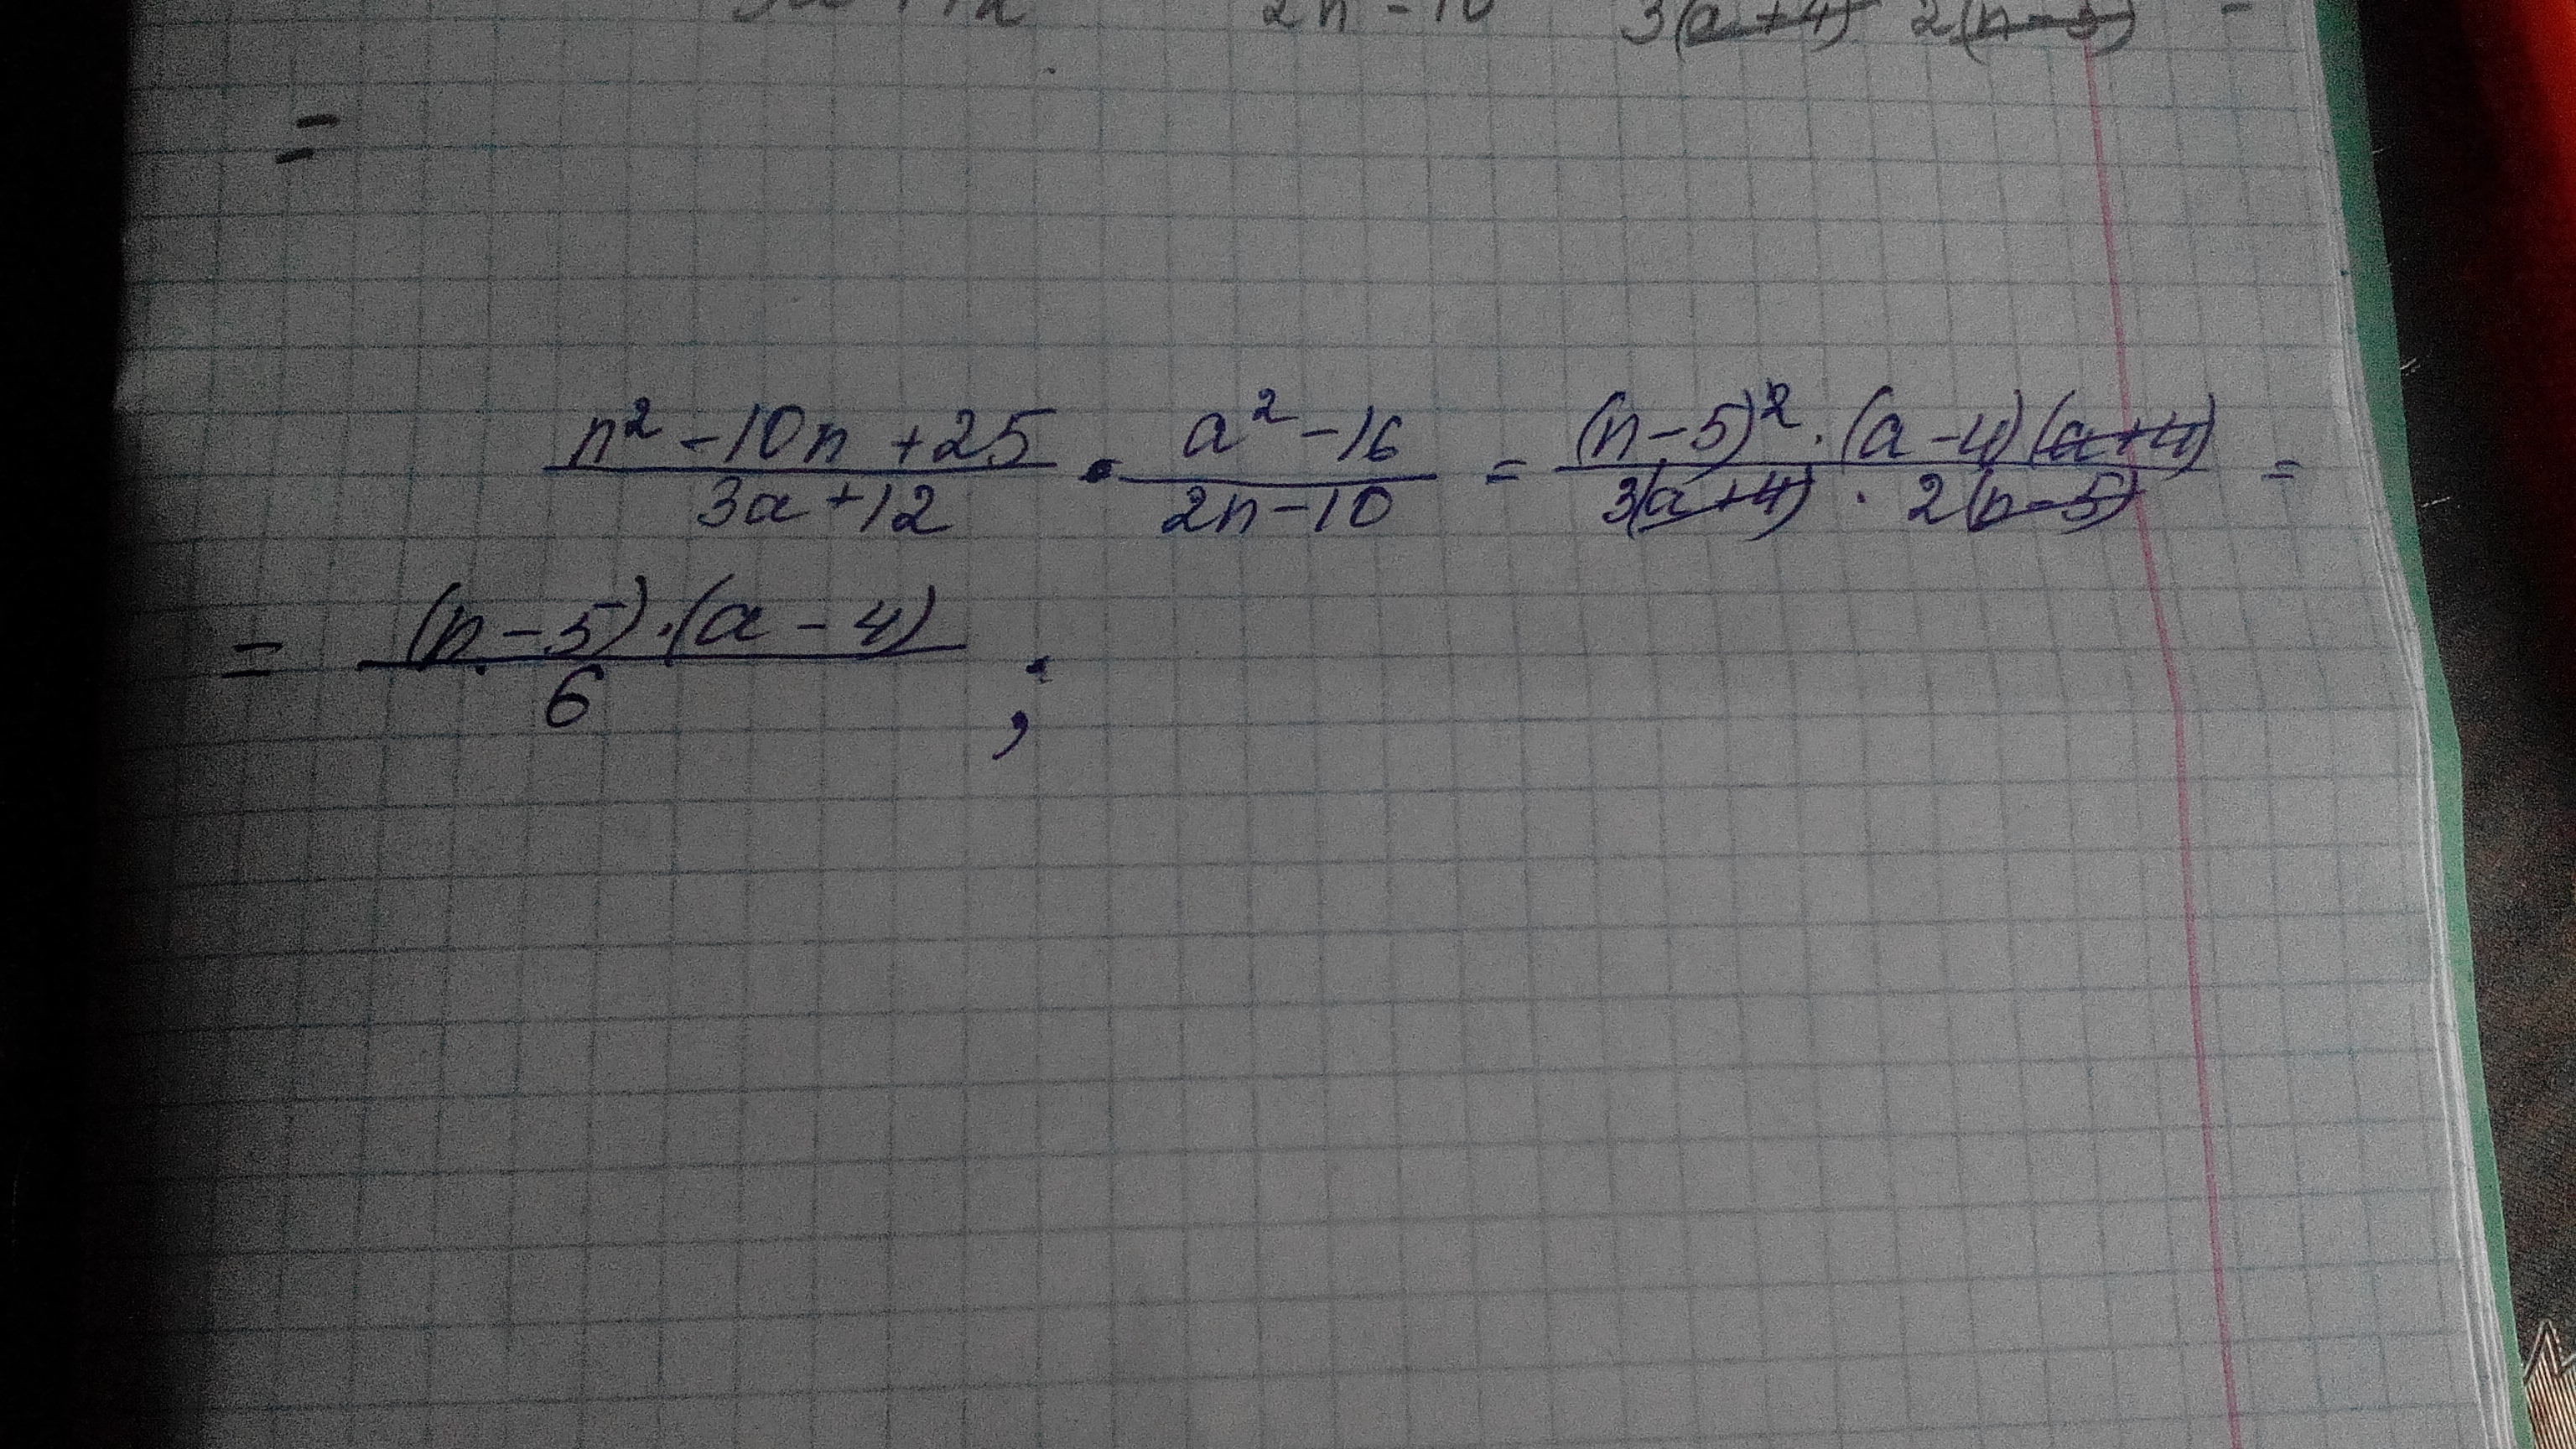 2n - 10 3(a+4) 2(n-5) =
=
(n² - 10n + 25)/(3a + 12) · (a² - 16)/(2n - 10) = ((n - 5)² · (a - 4)(a + 4))/(3(a + 4) · 2(n - 5)) =
= ((n - 5) · (a - 4))/6 ;